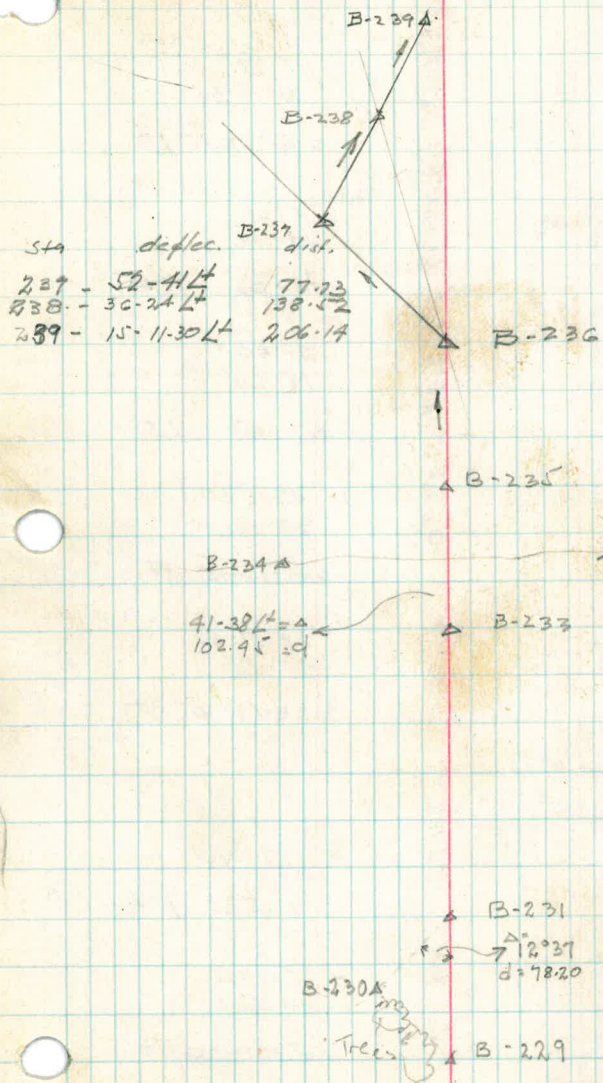 B-239
B-238
B-237
sta deflec. dist.
237 - 52-41 Lt 77.23
238 - 36-24 Lt 138.52
239 - 15-11-30 Lt 206.14
B-236
B-235
B-234
41-38 Lt = Δ
102.45 = d
B-233
B-231
Δ = 12°37
d = 78.20
B-230
Trees
B-229